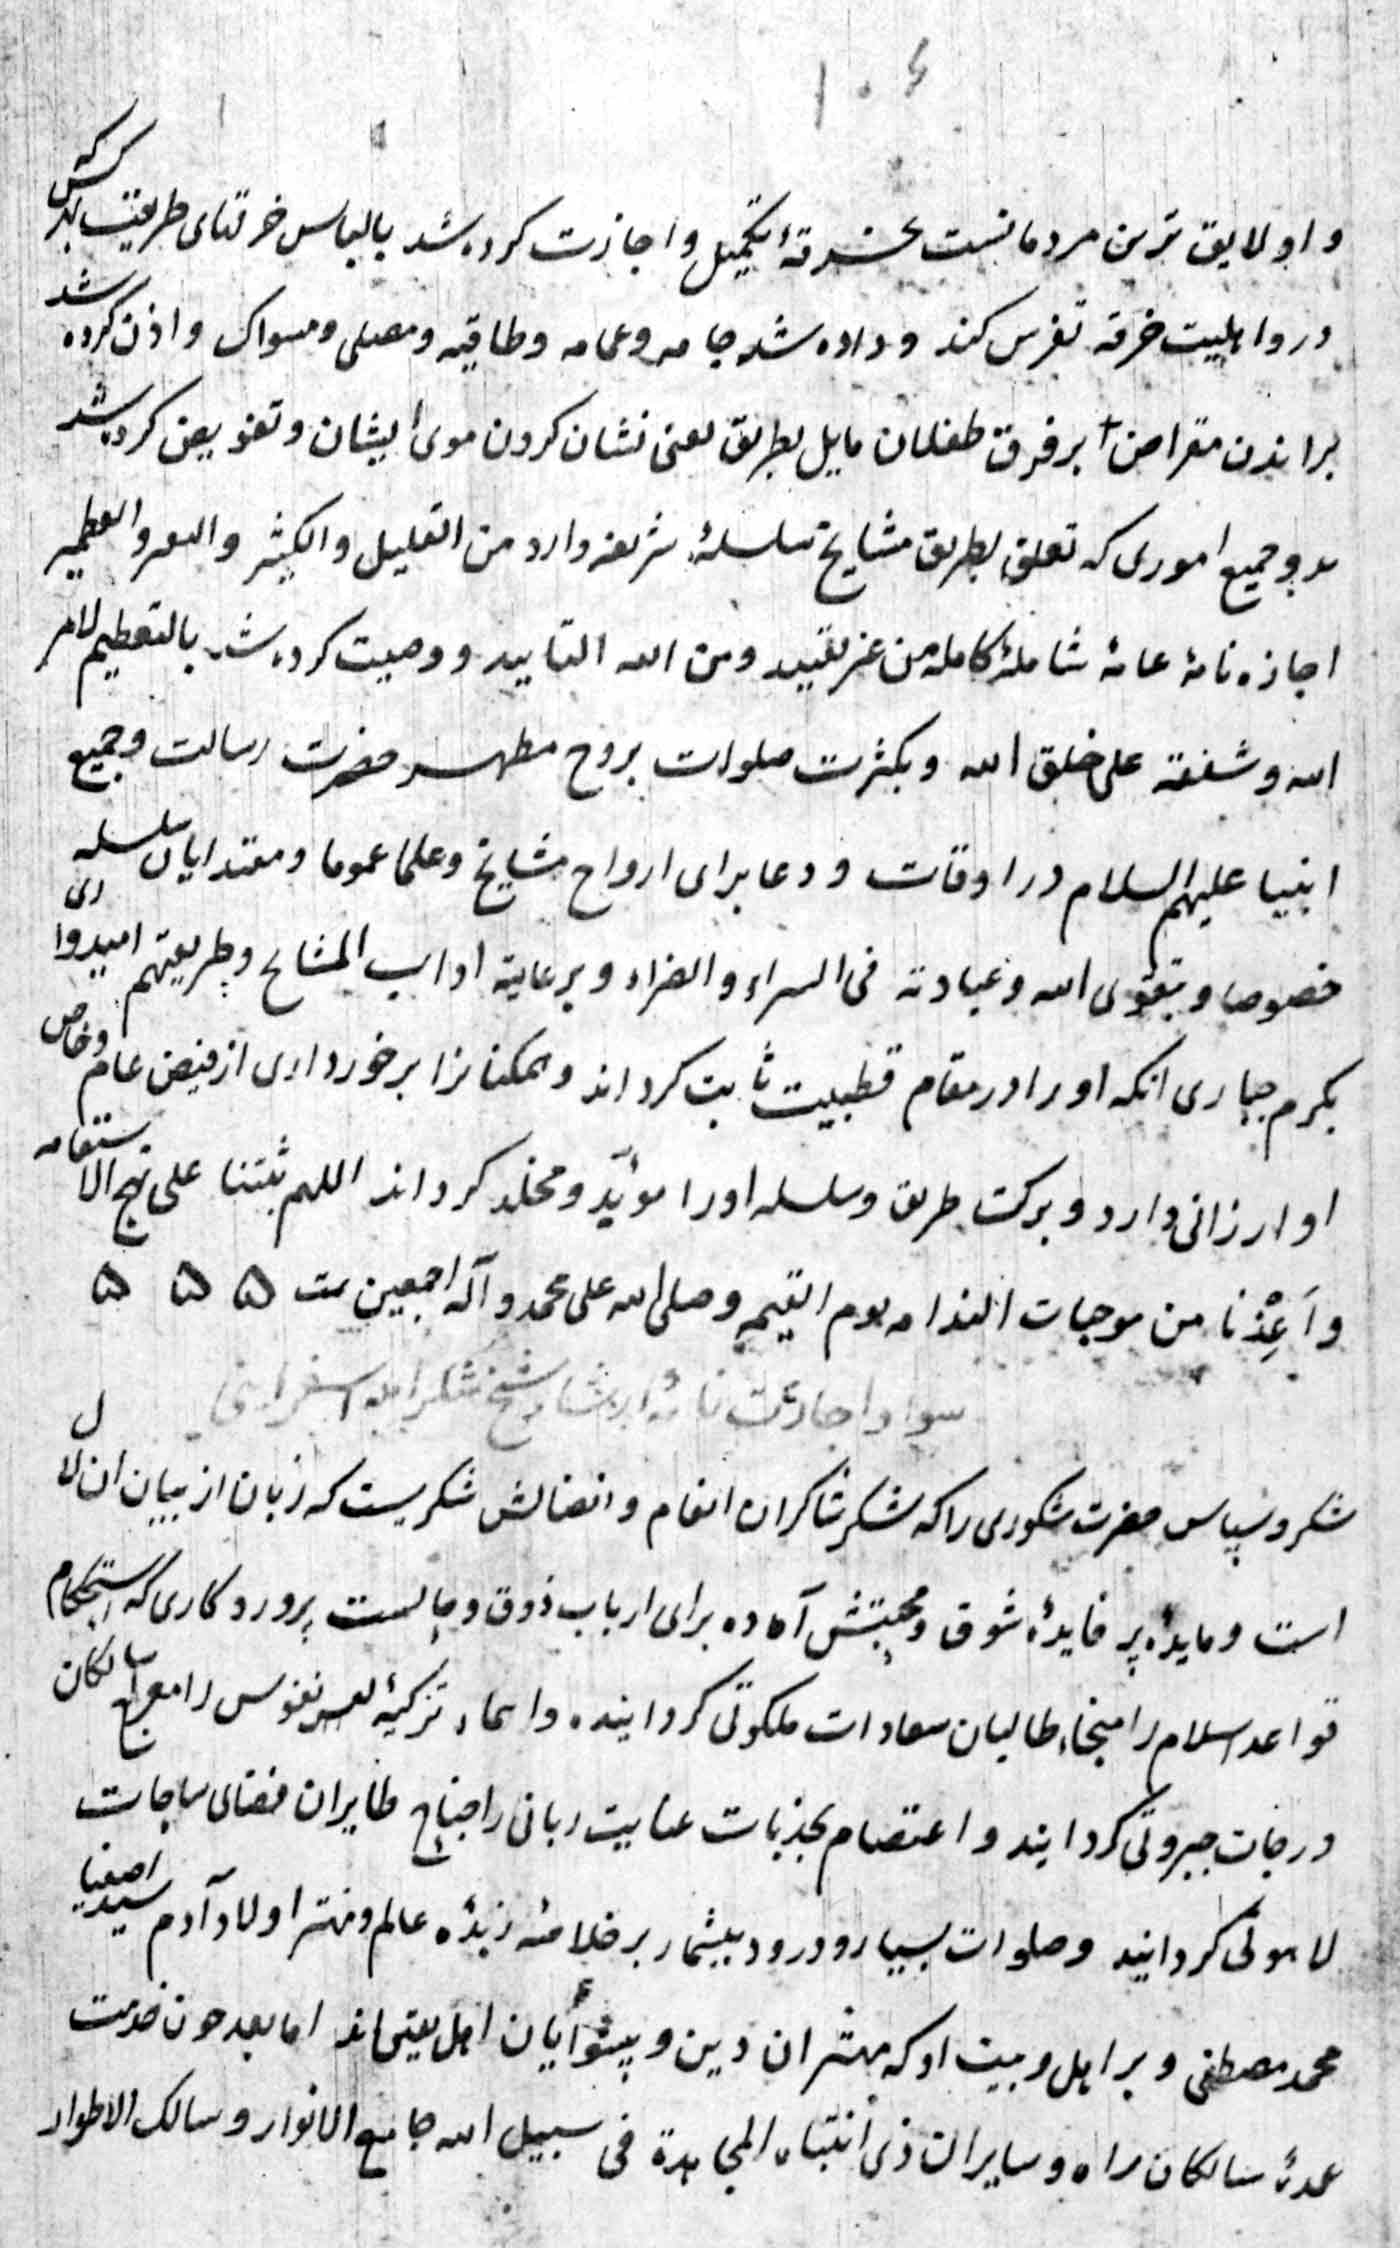 ۱۰۶
و او لایق ترین مردمانست بخرقهٔ تکمیل و اجازت کرده شد بالباس خرقهای طریقت بهر کس که
درو اهلیت خرقه تفرس کند و داده شد جامه و عمامه و طاقیه و مصلی و مسواک و اذن کرده شد
براندن مقراض بر فرق طفلان مایل بطریق یعنی نشان کردن موی ایشان و تفویض کرده شد
بدو جمیع اموری که تعلق بطریق مشایخ سلسلهٔ شریفه دارد من القلیل والکثیر و
اجازه نامهٔ عامهٔ شاملهٔ کامله من غیر تقیید ومن الله التایید و وصیت کرده شد بالتعظیم لامر
الله و شفقته علی خلق الله و بکثرت صلوات بروح مطهر حضرت رسالت و جمیع
انبیا علیهم السلام در اوقات و دعا برای ارواح مشایخ و علما عموما و مقتدایان سلسله
خصوصا و بتقوی الله و عبادته فی السراء والضراء و برعایة اداب المشایخ و طریقتهم امیدواری
بکرم جباری انکه او را در مقام قطبیت ثابت کرداند و همکنانرا برخورداری از فیض عام و خاص
او ارزانی دارد و برکت طریق و سلسله او را مؤبّد و مخلد کرداند اللهم ثبتنا علی نهج الاستقامه
و اَعِذْنا من موجبات الندامه یوم القیمه و صلی الله علی محمد و آله اجمعین تمت ۵ ۵ ۵
سواد اجازت نامهٔ ارشاد شیخ شکرالله اسفراینی
شکر و سپاس حضرت شکوری را که شکر شاکران انعام و افضالش شکریست که زبان از بیان ان لال
است و مایدهٔ پر فایدهٔ شوق و محبتش آماده برای ارباب ذوق و حالست پروردکاری که استحکام
قواعد اسلام را منجاء طالبان سعادات ملکوتی کردانیده و تزکیهٔ نفوس را معراج سالکان
درجات جبروتی کردانید و اعتصام بجذبات عنایت ربانی را جناح طایران فضای ساحات
لاهوتی کردانید و صلوات بسیار و درود بیشمار بر خلاصهٔ زبدهٔ عالم و مهتر اولاد آدم سید اصفیا
محمد مصطفی و بر اهل و بیت او که مهتران دین و پیشوایان اهل یقین‌اند اما بعد چون خدمت
عمدهٔ سالکان راه و سایران ذی انتباه المجاهدة فی سبیل الله جامع الانوار و سالک الاطوار